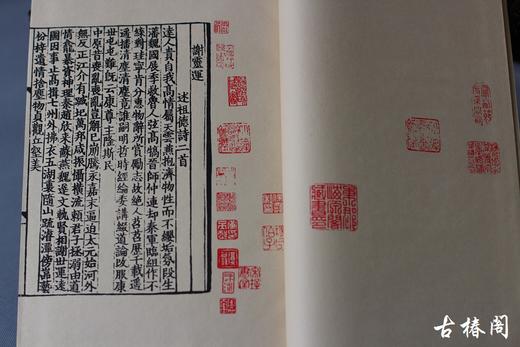 謝靈運
述祖德詩二首
達人貴自我高情屬天雲兼抱濟物性而不纓垢氛段生
藩魏國展季救魯人弦高犒晉師仲連却秦軍臨組乍不
緤對珪寧肯分惠物辭所賞勵志故絕人苕苕歷千載遥
遥播清塵清塵竟誰嗣明哲時經綸委講綴道論改服康
世屯屯難既云康尊主隆斯民
中原昔喪亂喪亂豈解已崩騰永嘉末逼迫太元始河外
無反正江介有蹙圮萬邦咸振懾橫流賴君子拯溺由道
情龕暴資神理秦趙欣來蘇燕魏遲文軌賢相謝世運遠
圖因事止高揖七州外拂衣五湖裏隨山疏濬潭傍巖藝
枌梓遺情捨塵物貞觀丘壑美
古椿阁